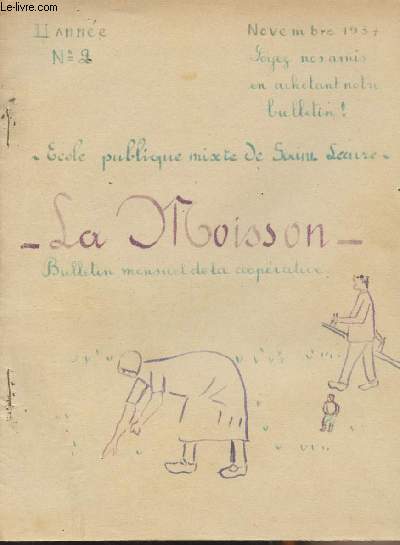 www.le-livre.com
II ANNÉE
Nº 2
Novembre 1937
Soyez nos amis
en achetant notre
bulletin !
- Ecole publique mixte de
- La Moisson -
Bulletin mensuel de la coopérative